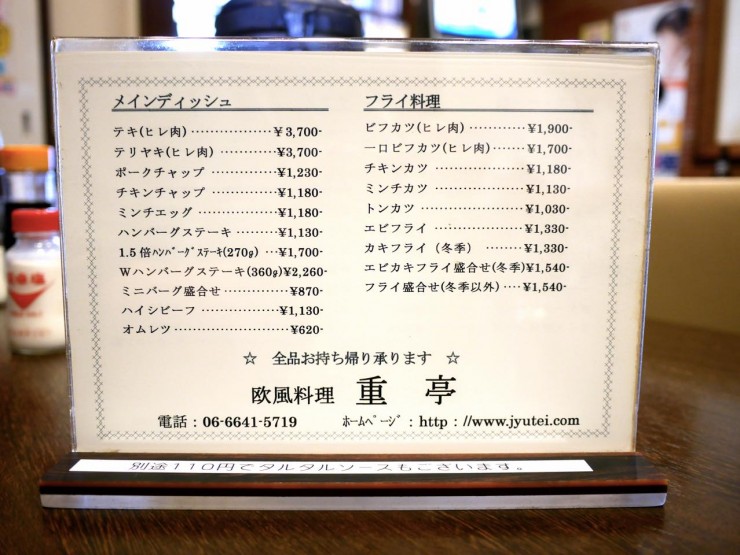 メインディッシュ
テキ(ヒレ肉)‥‥‥‥‥‥‥‥¥3,700-
テリヤキ(ヒレ肉)‥‥‥‥‥‥¥3,700-
ポークチャップ ‥‥‥‥‥‥¥1,230-
チキンチャップ ‥‥‥‥‥‥¥1,180-
ミンチエッグ ‥‥‥‥‥‥‥¥1,180-
ハンバーグステーキ ‥‥‥‥¥1,130-
1.5倍ﾊﾝﾊﾞｰｸﾞｽﾃｰｷ(270g) ‥¥1,700-
Wハンバーグステーキ(360g)¥2,260-
ミニバーグ盛合せ ‥‥‥‥‥¥870-
ハイシビーフ ‥‥‥‥‥‥‥¥1,130-
オムレツ ‥‥‥‥‥‥‥‥‥¥620-
フライ料理
ビフカツ(ヒレ肉) ‥‥‥‥‥¥1,900-
一口ビフカツ(ヒレ肉)‥‥‥¥1,700-
チキンカツ ‥‥‥‥‥‥‥‥¥1,180-
ミンチカツ ‥‥‥‥‥‥‥‥¥1,130-
トンカツ ‥‥‥‥‥‥‥‥‥¥1,030-
エビフライ ‥‥‥‥‥‥‥‥¥1,330-
カキフライ（冬季） ‥‥‥‥¥1,330-
エビカキフライ盛合せ(冬季)¥1,540-
フライ盛合せ(冬季以外)‥‥¥1,540-
☆ 全品お持ち帰り承ります ☆
欧風料理 重亭
電話：06-6641-5719 ﾎｰﾑﾍﾟｰｼﾞ：http：//www.jyutei.com
別途110円でタルタルソースもございます。